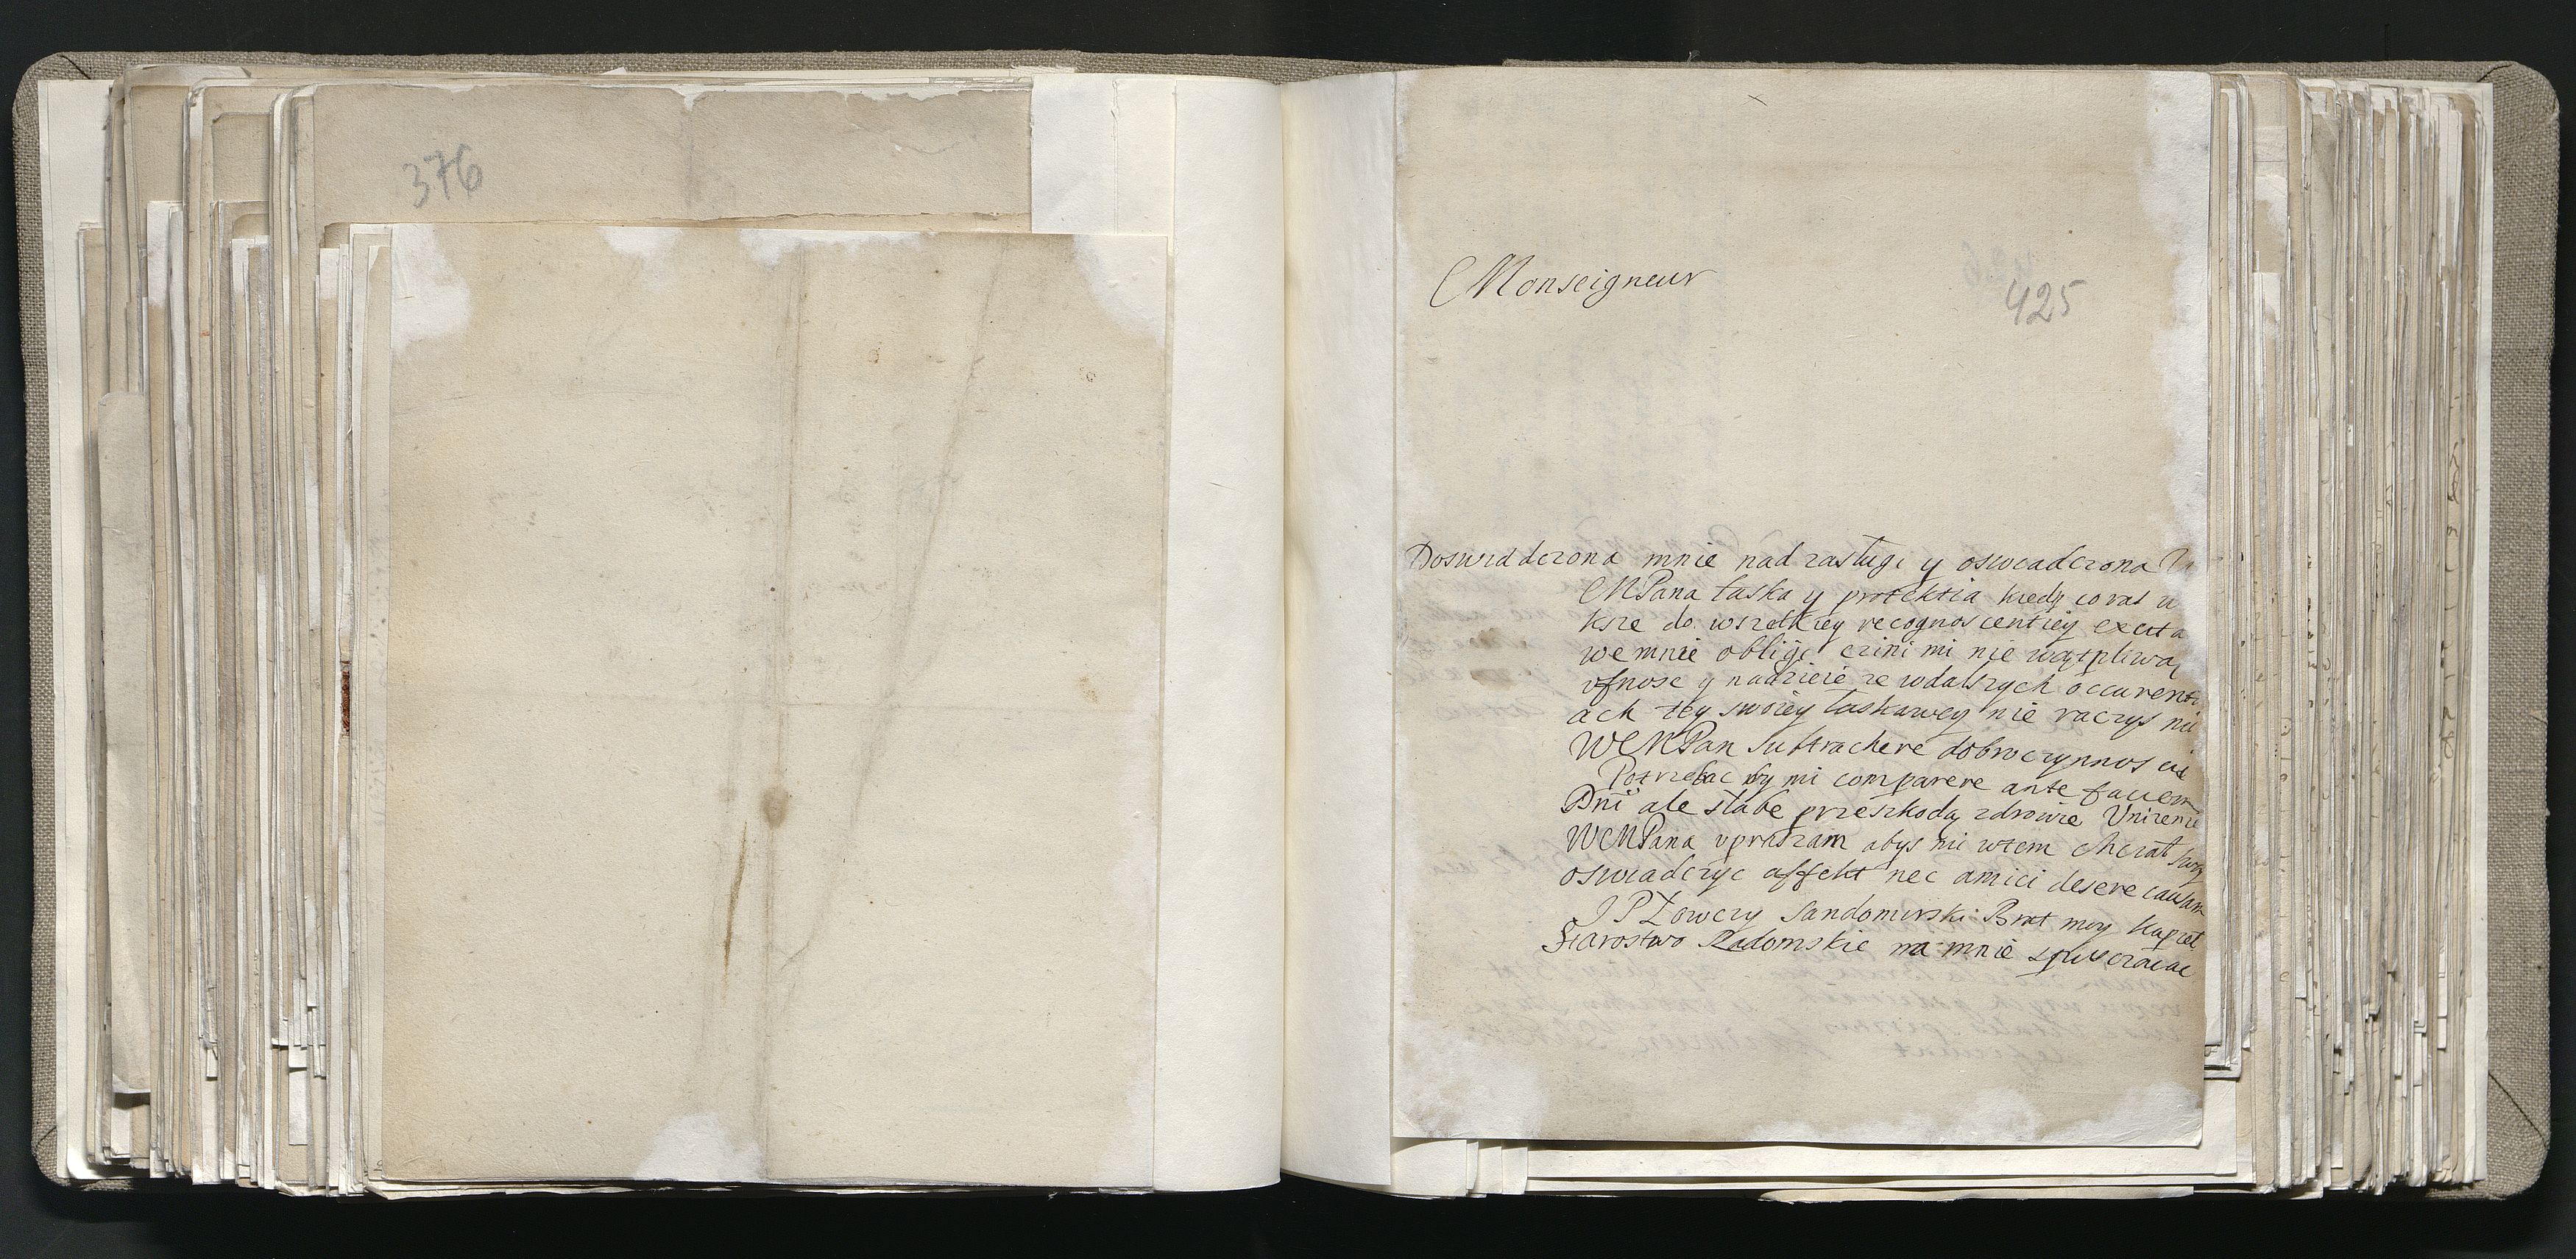 376
425
Monseigneur
Doswiadczona mnie nad zasługi y oswiadczona
WMPana łaska y protektia kiedy coraz
ksze do wszelkiey recognoscentiey excita
we mnie obligi czini mi nie wątpliwą
ufnosc y nadzieie ze wdalszych occurenti
ach tey swoiey łaskawey nie raczys mi
WMPan subtrachere dobroczynnosci
Potrzebac by mi comparere ante faciem
Dni ale słabe przeszkodą zdrowie Unizenie
WMPana upraszam abys mi wtem chciał swoy
oswiadczyc affekt nec amici desere causam
J P Łowczy Sandomirski Brat moy
Starostwo Radomskie na mnie spusczaiac